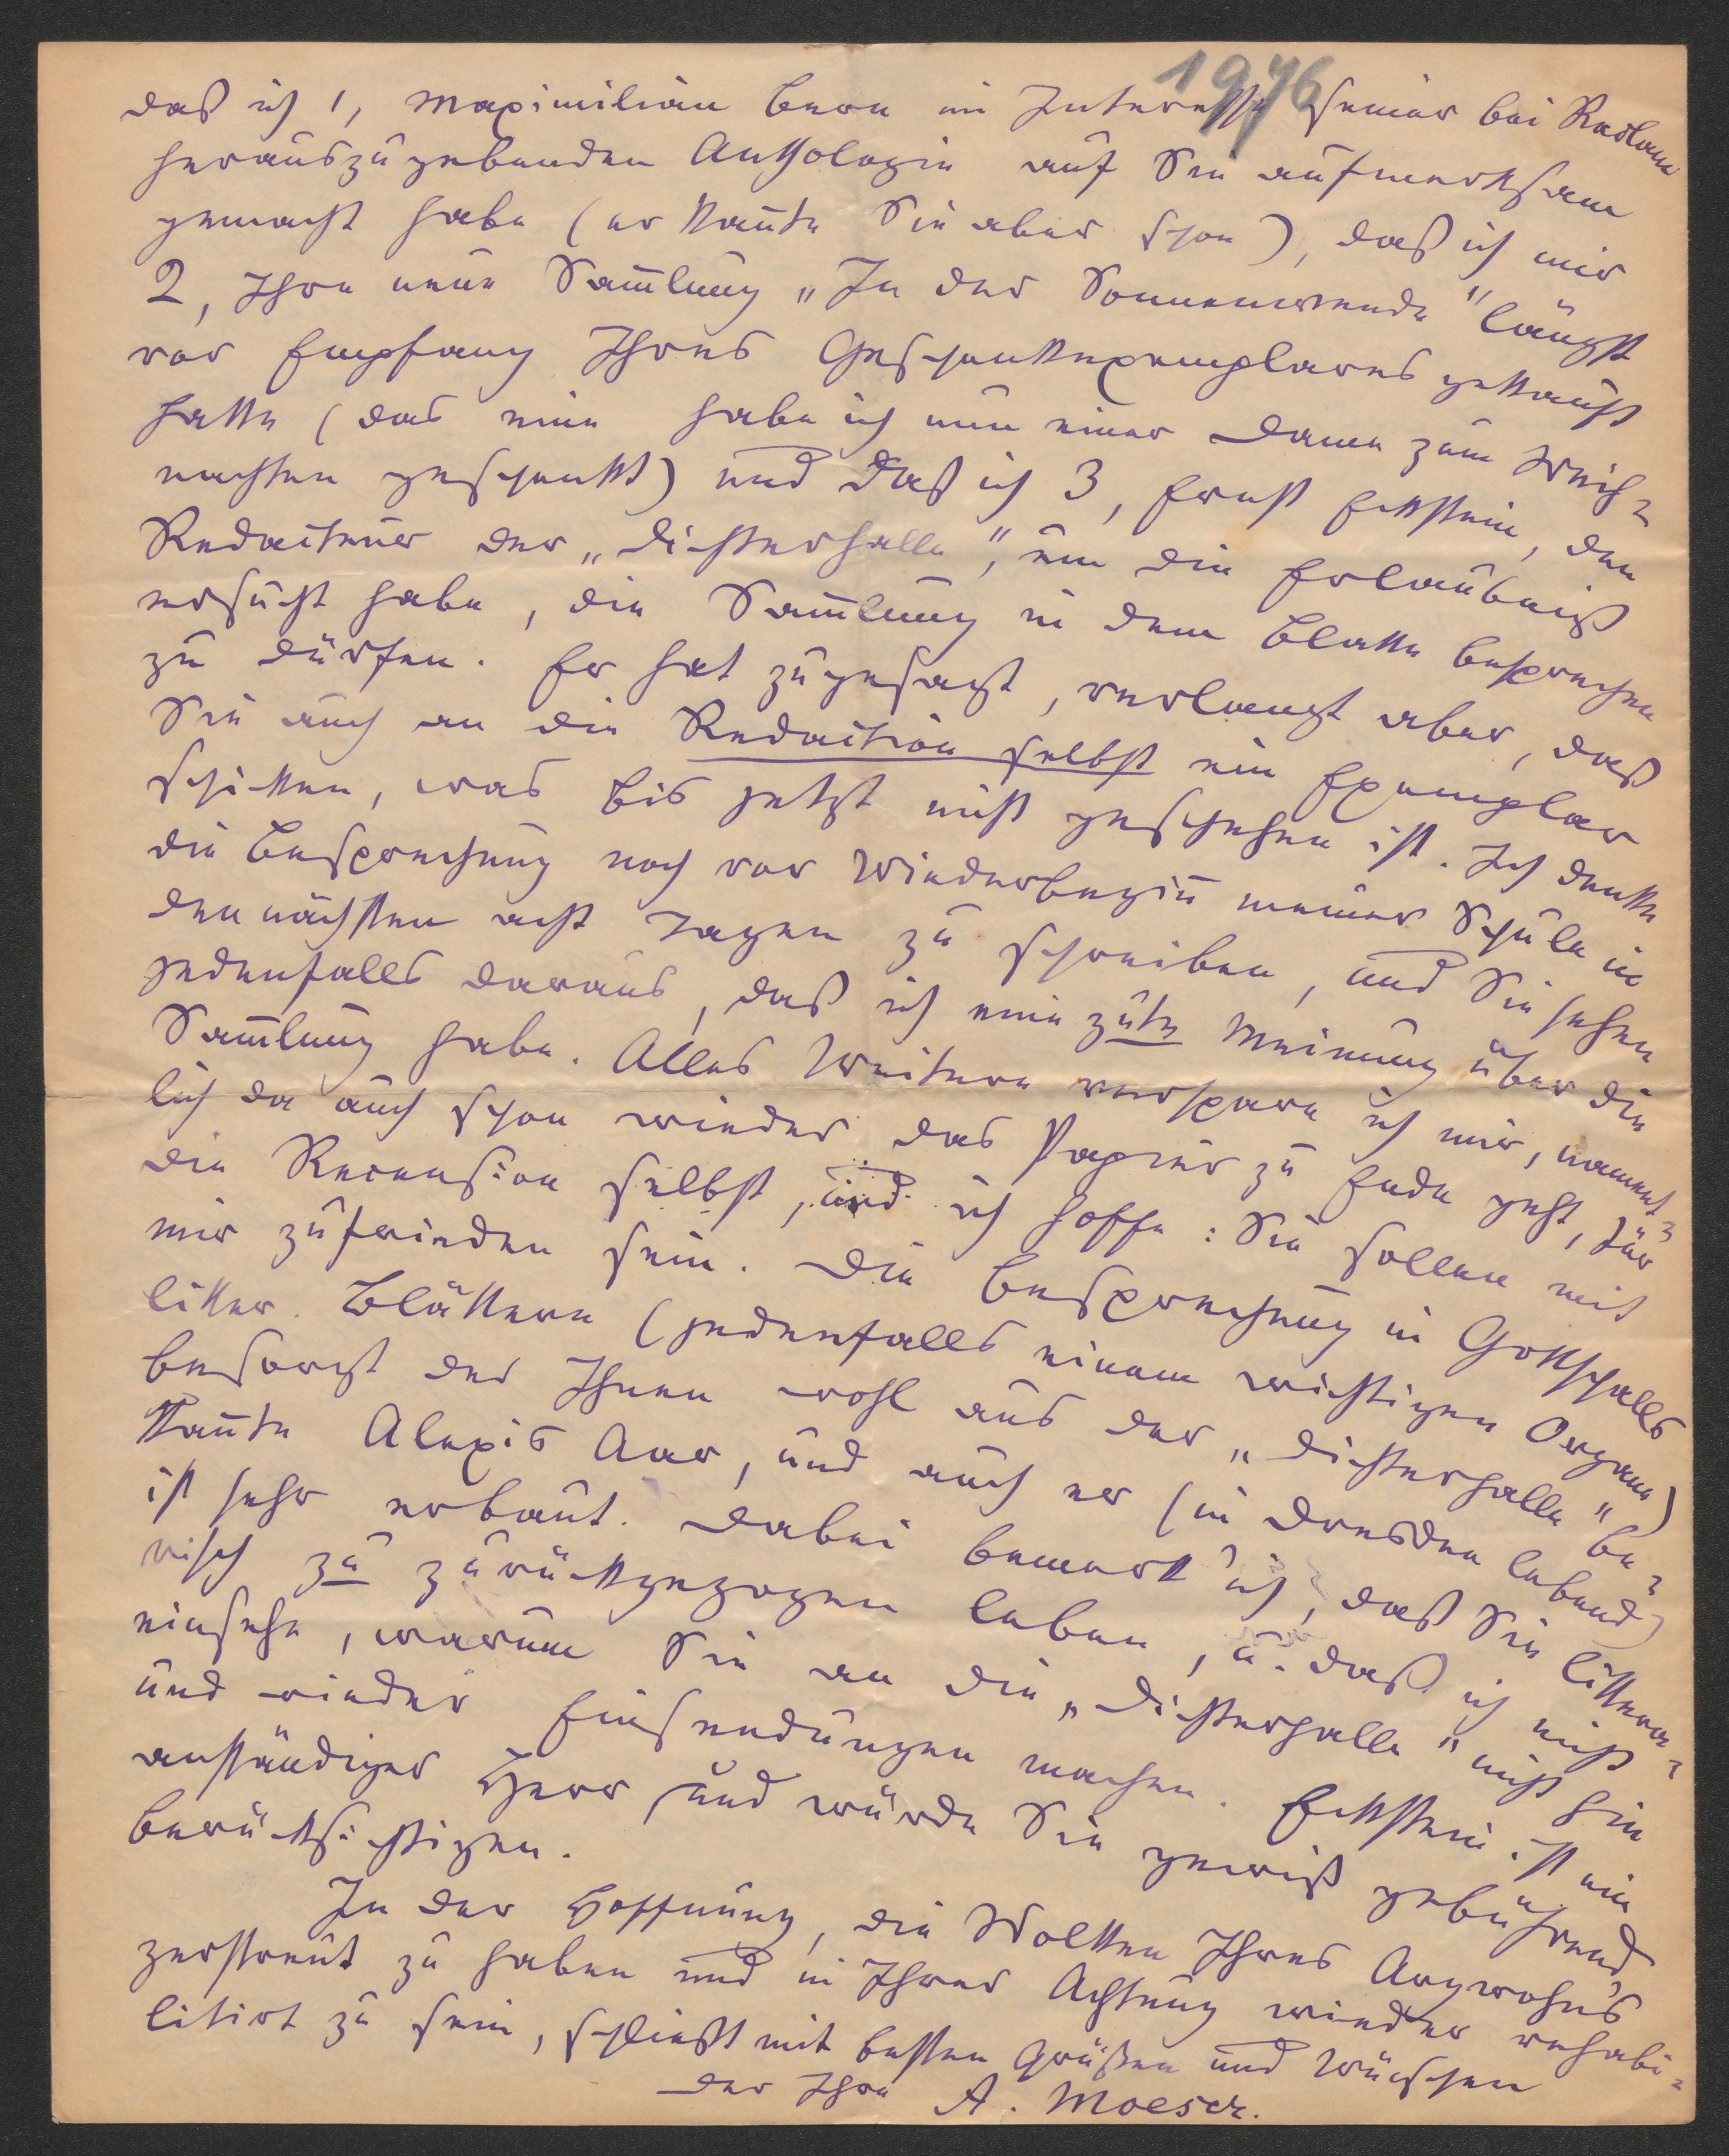 1976
daß ich 1, Maximilian Bern im Interesse seiner bei Reclam
herauszugebenden Anthologie auf Sie aufmerksam
gemacht habe (er kan̄te Sie aber schon), daß ich mir
2, Ihre neue Sam̄lung „In der Sonnenwende" längst
vor Empfang Ihres Geschenkexemplares gekauft
hatte (das eine habe ich nun einer Dame zum Weih-
nachten geschenkt) und daß ich 3, Ernst Eckstein, den
Redacteur der „Dichterhalle", um die Erlaubniß
ersucht habe, die Sam̄lung in dem Blatte besprechen
zu dürfen. Er hat zugesagt, verlangt aber, daß
Sie auch an die Redaction selbst ein Exemplar
schicken, was bis jetzt nicht geschehen ist. Ich denke
die Besprechung noch vor Wiederbegin̄ meiner Schule in
den nächsten acht Tagen zu schreiben, und Sie sehen
jedenfalls daraus, daß ich eine gute Meinung über die
Sam̄lung habe. Alles Weitere verspare ich mir, nament-
lich da auch schon wieder das Papier zu Ende geht, für
die Recension selbst, und ich hoffe: Sie sollen mit
mir zufrieden sein. Die Besprechung in Gottschalls
litter. Blättern (jedenfalls einem wichtigen Organe)
besorgt der Ihnen wohl aus der „Dichterhalle" be-
kan̄te Alexis Aar, und auch er (in Dresden lebend)
ist sehr erbaut. Dabei bemerk' ich, daß Sie littera-
risch zu zurückgezogen leben, u. daß ich nicht
einsehe, warum Sie an die „Dichterhalle" nicht hin
und wieder Einsendungen machen. Eckstein ist ein
anständiger Herr und würde Sie gewiß gebührend
berücksichtigen.
In der Hoffnung, die Wolken Ihres Argwohns
zerstreut zu haben und in Ihrer Achtung wieder rehabi-
litirt zu sein, schließt mit besten Grüßen und Wünschen
der Ihre A. Moeser.